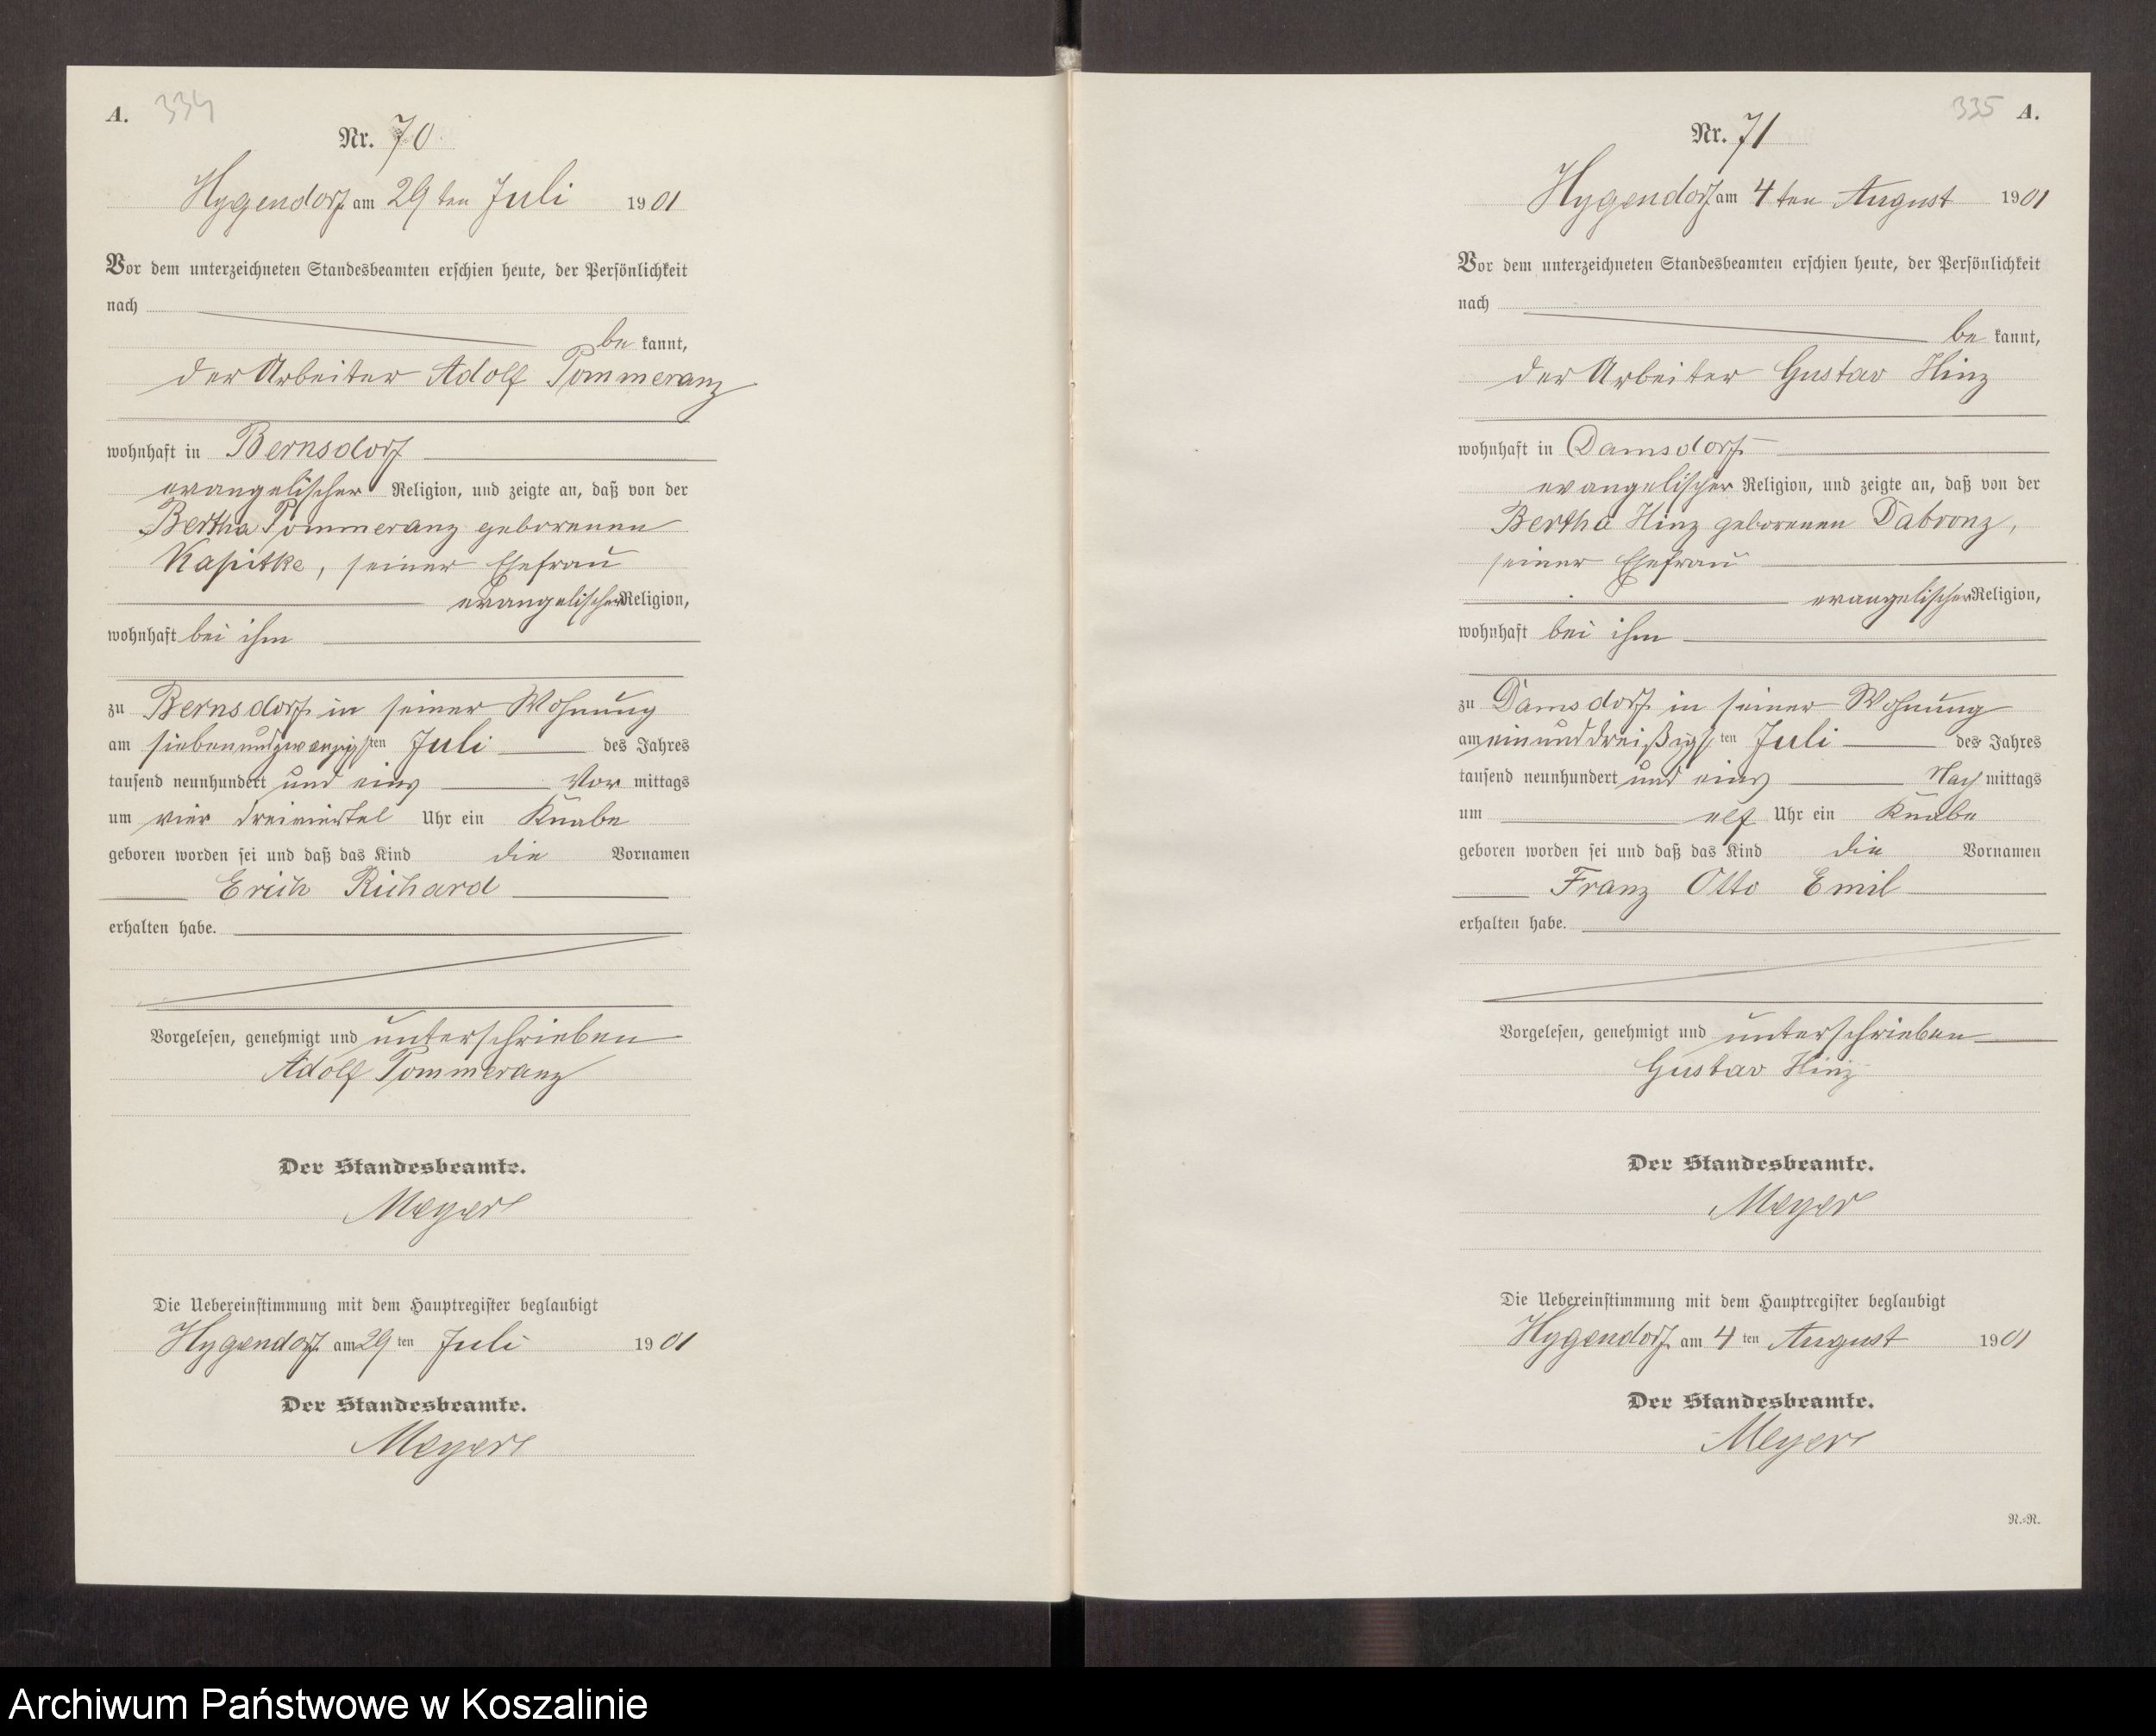 A. 334
Nr. 70
Hygendorf am 29ten Juli 1901
Vor dem unterzeichneten Standesbeamten erschien heute, der Persönlichkeit
nach
be kannt,
der Arbeiter Adolf Pommeranz
wohnhaft in Bernsdorf
evangelischer Religion, und zeigte an, daß von der
Bertha Pommeranz geborenen
Kapitke, seiner Ehefrau
evangelischer Religion,
wohnhaft bei ihm
zu Bernsdorf in seiner Wohnung
am siebenundzwanzigsten Juli des Jahres
tausend neunhundert und eins Vor mittags
um vier dreiviertel Uhr ein Knabe
geboren worden sei und daß das Kind die Vornamen
Erich Richard
erhalten habe.
Vorgelesen, genehmigt und unterschrieben
Adolf Pommeranz
Der Standesbeamte.
Meyer
Die Uebereinstimmung mit dem Hauptregister beglaubigt
Hygendorf am 29ten Juli 1901
Der Standesbeamte.
Meyer
335 A.
Nr. 71
Hygendorf am 4ten August 1901
Vor dem unterzeichneten Standesbeamten erschien heute, der Persönlichkeit
nach
be kannt,
der Arbeiter Gustav Hinz
wohnhaft in Damsdorf
evangelischer Religion, und zeigte an, daß von der
Bertha Hinz geborenen Dabronz,
seiner Ehefrau
evangelischer Religion,
wohnhaft bei ihm
zu Damsdorf in seiner Wohnung
am einunddreißigsten Juli des Jahres
tausend neunhundert und eins Nach mittags
um elf Uhr ein Knabe
geboren worden sei und daß das Kind die Vornamen
Franz Otto Emil
erhalten habe.
Vorgelesen, genehmigt und unterschrieben
Gustav Hinz
Der Standesbeamte.
Meyer
Die Uebereinstimmung mit dem Hauptregister beglaubigt
Hygendorf am 4ten August 1901
Der Standesbeamte.
Meyer
N.-R.
Archiwum Państwowe w Koszalinie